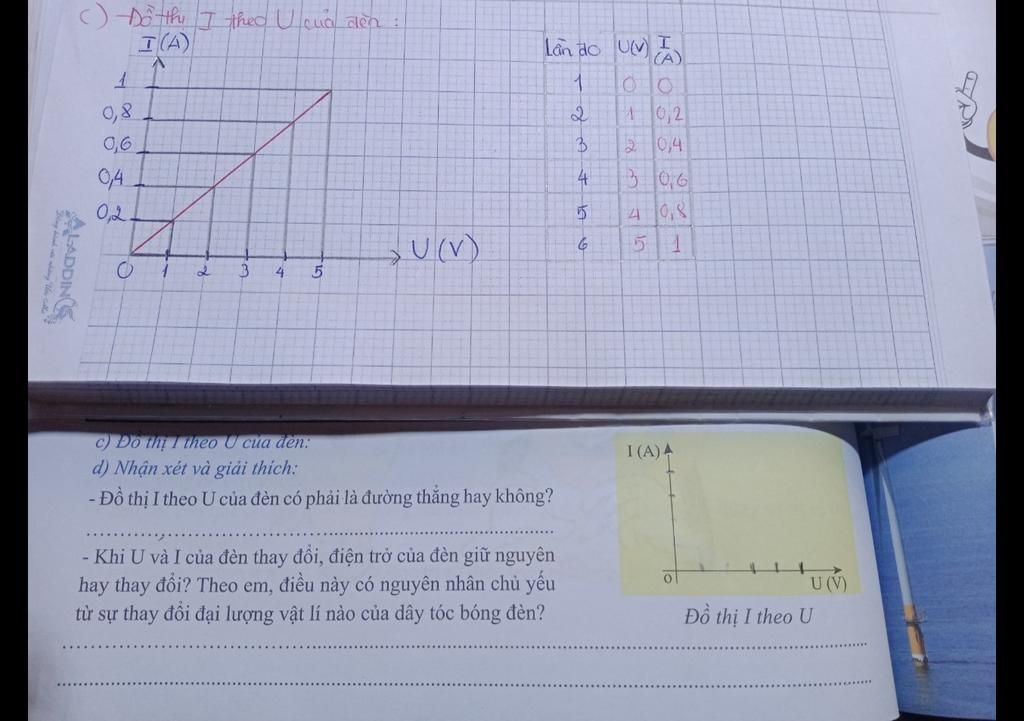 c) Đồ thị I theo U của đèn :
I (A)
1
0,8
0,6
0,4
0,2
0 1 2 3 4 5
U (V)
Lần đo U(V) I (A)
1 0 0
2 1 0,2
3 2 0,4
4 3 0,6
5 4 0,8
6 5 1
ALADDIN
c) Đồ thị I theo U của đèn:
d) Nhận xét và giải thích:
- Đồ thị I theo U của đèn có phải là đường thẳng hay không?
- Khi U và I của đèn thay đổi, điện trở của đèn giữ nguyên
hay thay đổi? Theo em, điều này có nguyên nhân chủ yếu
từ sự thay đổi đại lượng vật lí nào của dây tóc bóng đèn?
I (A)
0
U (V)
Đồ thị I theo U